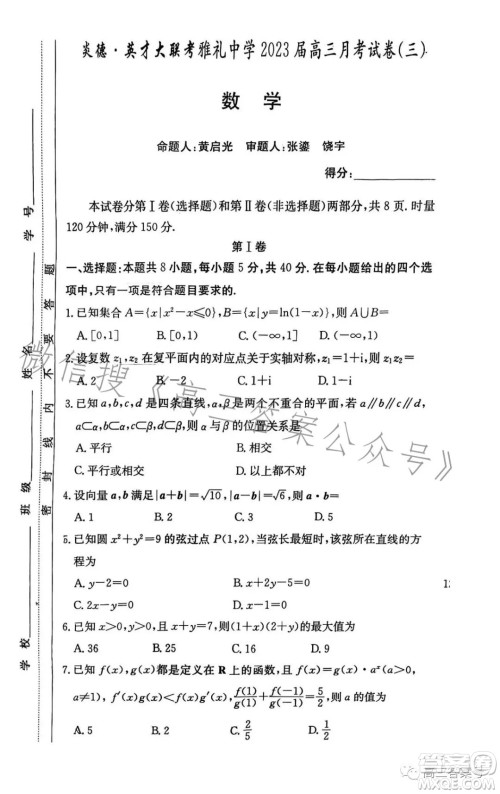 炎德·英才大联考雅礼中学2023届高三月考试卷(三)
数 学
命题人:黄启光 审题人:张鎏 饶宇
得分:
本试卷分第Ⅰ卷(选择题)和第Ⅱ卷(非选择题)两部分,共8页.时量
120分钟,满分150分.
第Ⅰ卷
一、选择题:本题共8小题,每小题5分,共40分.在每小题给出的四个选
项中,只有一项是符合题目要求的.
1.已知集合A={x|x²-x≤0},B={x|y=ln(1-x)},则A∪B=
A.[0,1] B.[0,1) C.(-∞,1) D.(-∞,1]
2.设复数z₁,z₂在复平面内的对应点关于实轴对称,z₁=1+i,则z₁z₂=
A.2 B.-2 C.1+i D.1-i
3.已知a,b,c,d是四条直线,α,β是两个不重合的平面,若a∥b∥c∥d,
a⊂α,b⊂α,c⊂β,d⊂β,则α与β的位置关系是
A.平行 B.相交
C.平行或相交 D.以上都不对
4.设向量a,b满足|a+b|=√10,|a-b|=√6,则a·b=
A.1 B.2 C.3 D.5
5.已知圆x²+y²=9的弦过点P(1,2),当弦长最短时,该弦所在直线的方
程为
A.y-2=0 B.x+2y-5=0
C.2x-y=0 D.x-1=0
6.已知x>0,y>0,且x+y=7,则(1+x)(2+y)的最大值为
A.36 B.25 C.16 D.9
7.已知f(x),g(x)都是定义在R上的函数,且f(x)=g(x)·aˣ(a>0,且
a≠1),f′(x)g(x)<f(x)g′(x),f(1)/g(1)+f(-1)/g(-1)=5/2,则a的值为
A.5 B.2 C.5/2 D.1/2
学校 班级 姓名 学号
密封线内不要答题
微信搜《高三答案公众号》
高三答案号